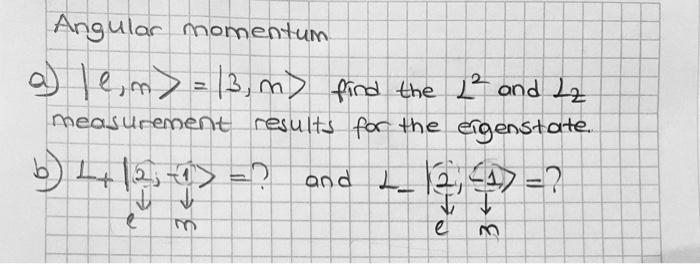 Angular momentum
a) |l,m> = |3,m> find the L² and Lz
measurement results for the eigenstate.
b) L+ |2,-1> = ? and L- |2,-1> = ?
↓ ↓ ↓ ↓
l m l m